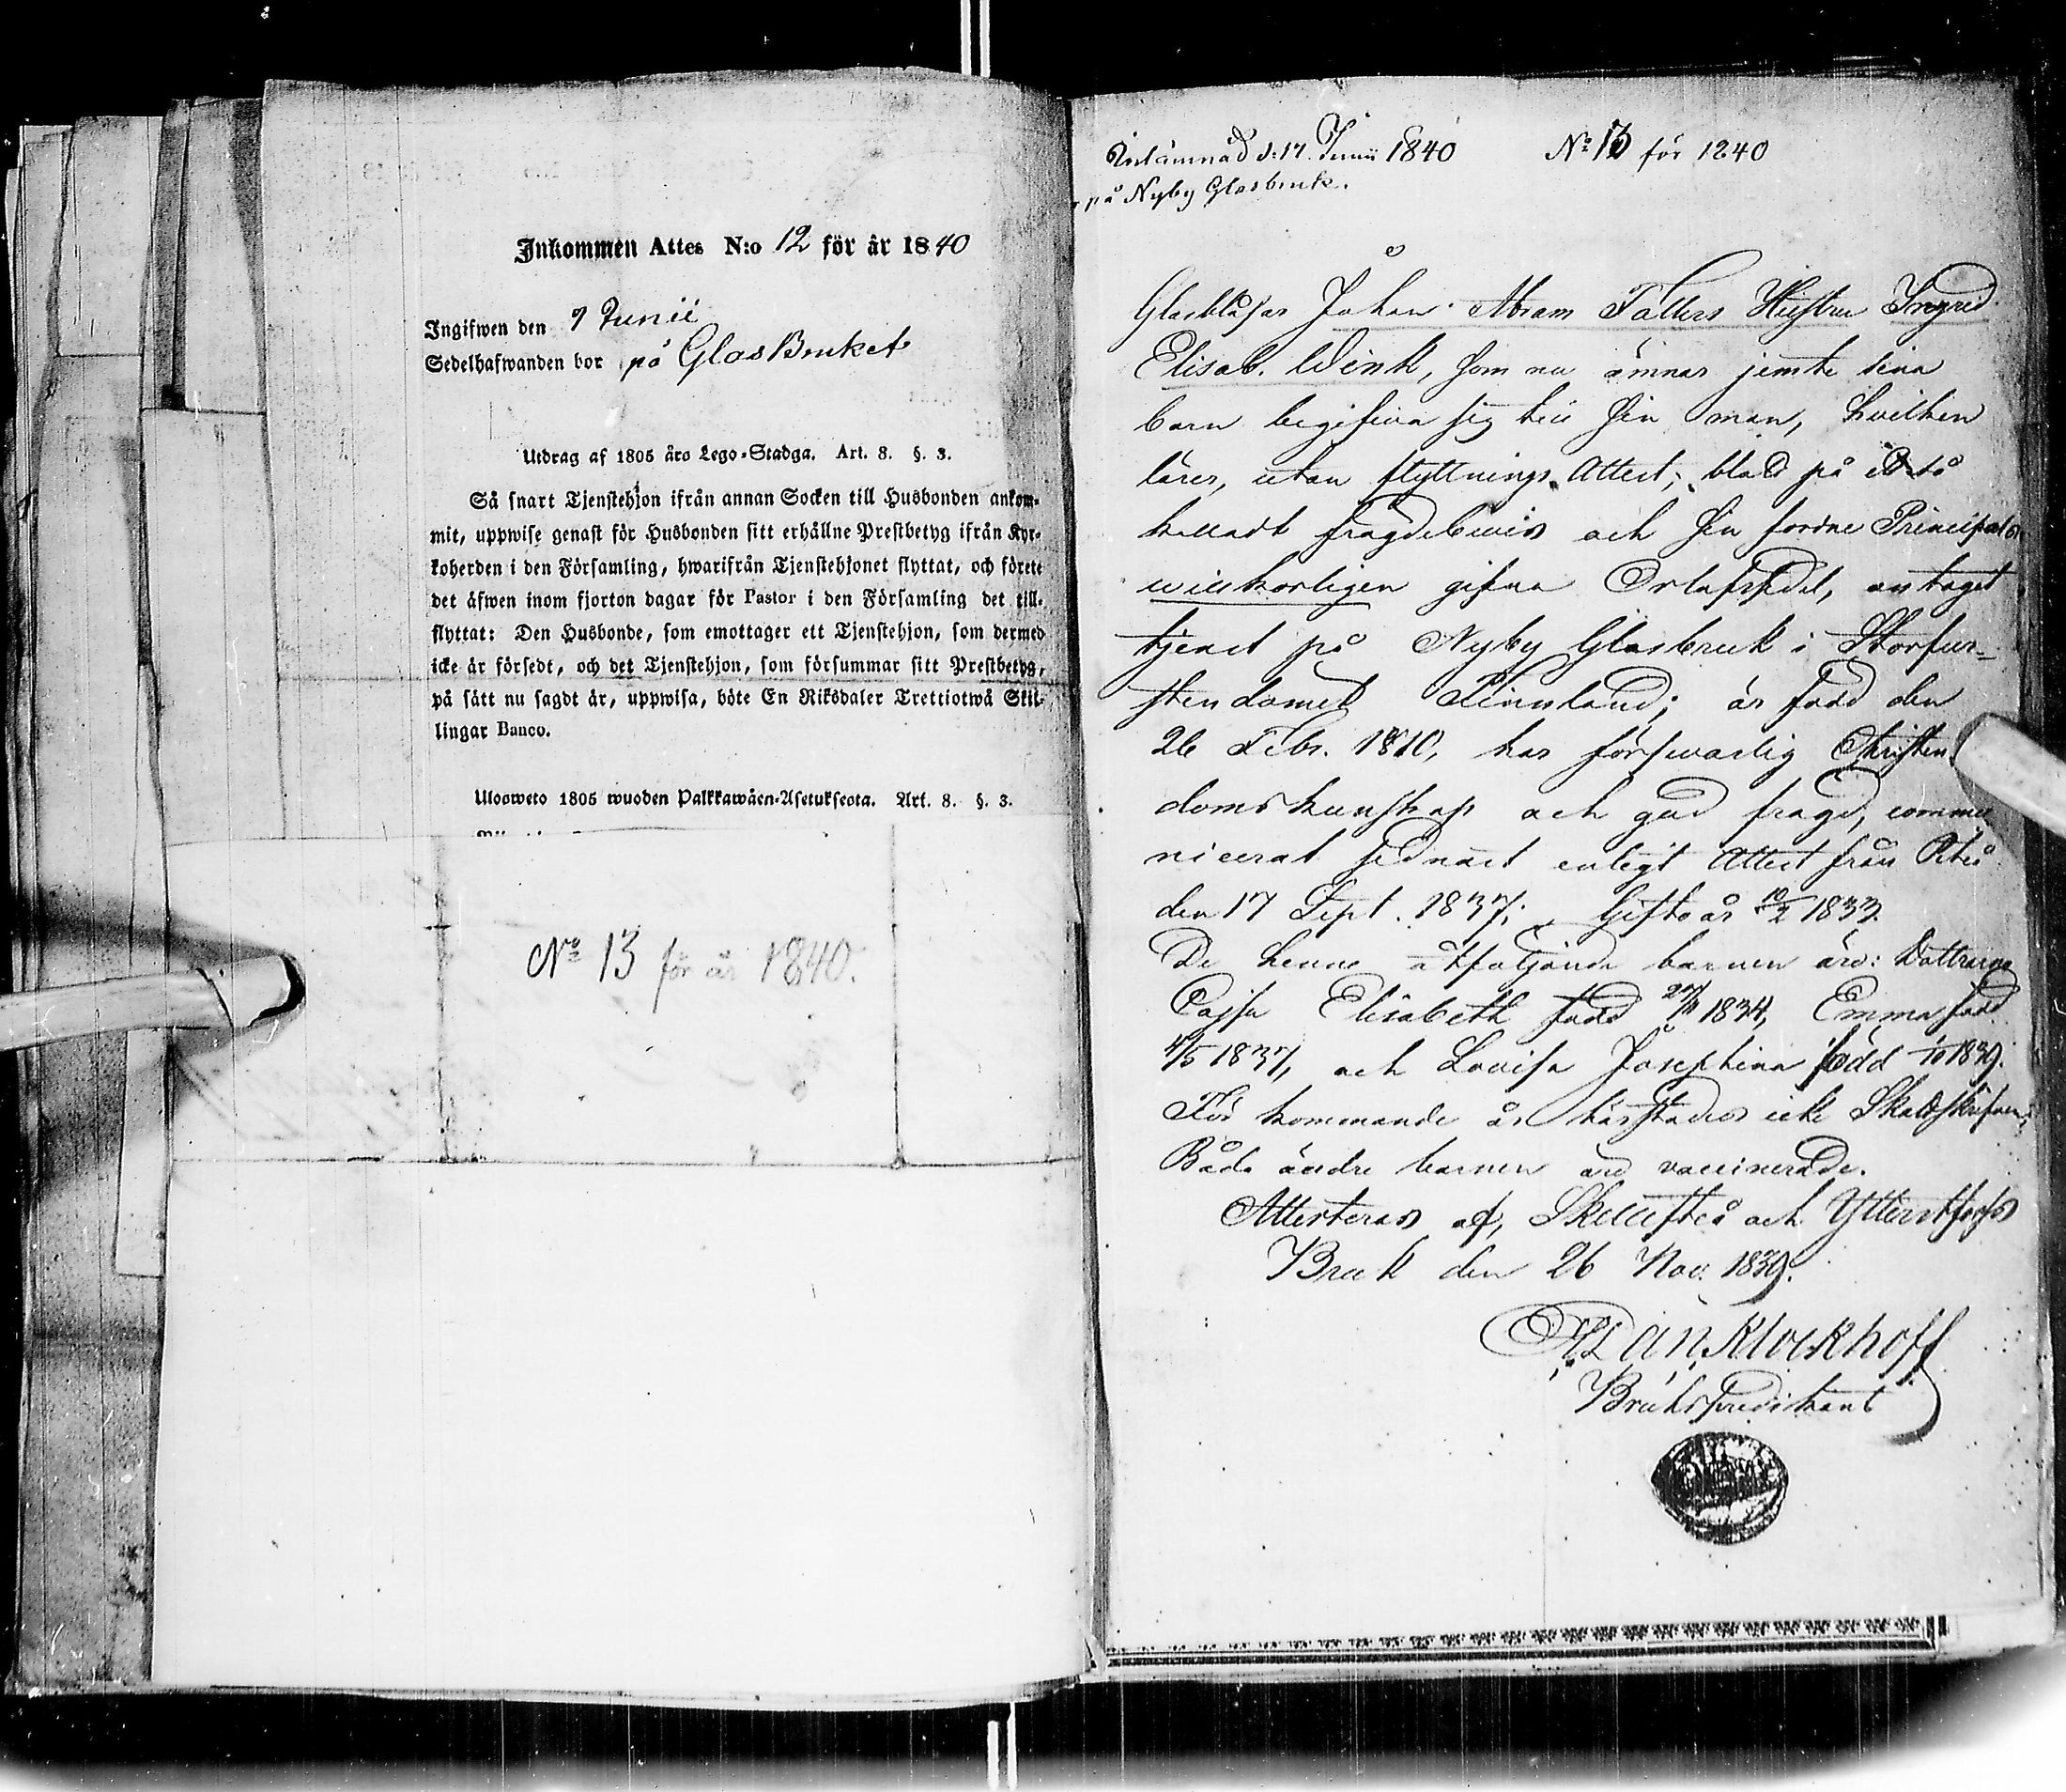 Inkommen Attes N:o 12 för år 1840
Ingifwen den 9 Junii
Sedelhafwanden bor på GlasBruket
Utdrag af 1805 års Lego-Stadga. Art. 8. §. 3.
Så snart Tjenstehjon ifrån annan Socken till Husbonden ankom-
mit, uppwise genast för Husbonden sitt erhållne Prestbetyg ifrån Kyr-
koherden i den Församling, hwarifrån Tjenstehjonet flyttat, och förete
det äfwen inom fjorton dagar för Pastor i den Församling det till-
flyttat: Den Husbonde, som emottager ett Tjenstehjon, som dermed
icke är försedt, och det Tjenstehjon, som försummar sitt Prestbetyg,
på sätt nu sagdt är, uppwisa, böte En Riksdaler Trettiotwå Skil-
lingar Banco.
Ulosweto 1805 wuoden Palkkawäen-Asetuksesta. Art. 8. §. 3.
No 13 för år 1840.
Inlämnad d. 17. Junii 1840 No 13 för 1840
på Nyby Glasbruk.
Glasblåsar Johan Abram Fallers Hustru Ingred
Elisab. Wink, som nu ämnar jemte sina
barn begifwa sig till sin man, hvilken
lärer, utan flyttnings Attest, blott på
fragdebevis och sin fordne Principals
willkorligen gifna Orlofssedel, antagit
tjenst på Nyby Glasbruk i Storfur-
stendömet Finnland; är född den
26 Febr. 1810, har förswarlig Christen
domskunskap och god fragd, commu
nicerat sednast enligt Attest från Piteå
den 17 Sept. 1837; Gift år 10/2 1833.
De henne åtföljande barnen äro: Döttrarna
Cajsa Elisabeth född 1834, Emma född
4/5 1837, och Lovisa Josephina född 1/10 1839.
För kommande år härstädes icke Skattskrifven;
Båda äldre barnen äro vaccinerade.
Attesteras af, Skellefteå och Ytterstfors
Bruk den 26 Nov. 1839.
Dan Klockhoff
Bruks predikant